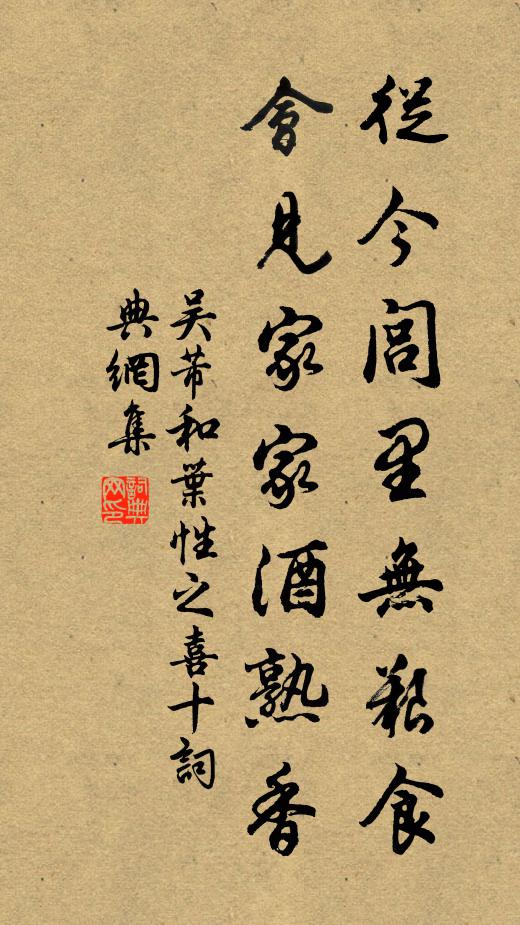 從今閭里無艱食
會見家家酒熟香
吳芾和葉性之喜十詞
典網集
詞典
网印